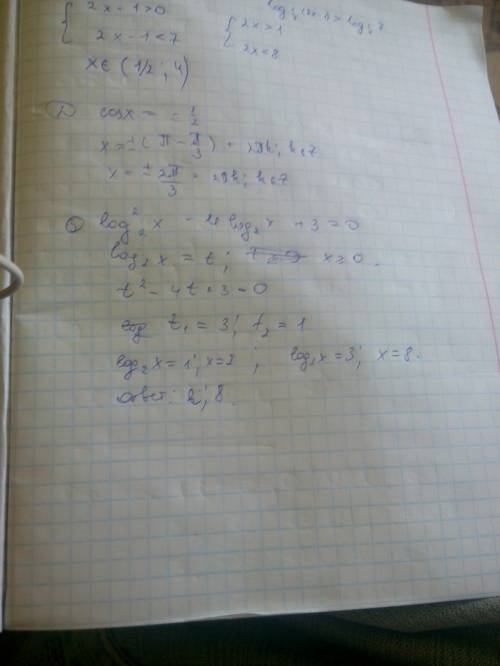 2x - 1 > 0
log (2x-1) > log 7
2x - 1 < 7
2x > 1
2x < 8
x ∈ (1/2 ; 4)
cos x = - 1/2
x = ± (π - π/3) + 2πk; k ∈ Z
x = ± 2π/3 + 2πk; k ∈ Z
log₂² x - 4 log₂ x + 3 = 0
log₂ x = t; x > 0.
t² - 4t + 3 = 0
t₁ = 3; t₂ = 1
log₂ x = 1; x = 2 ; log₂ x = 3; x = 8.
Ответ: 2; 8.